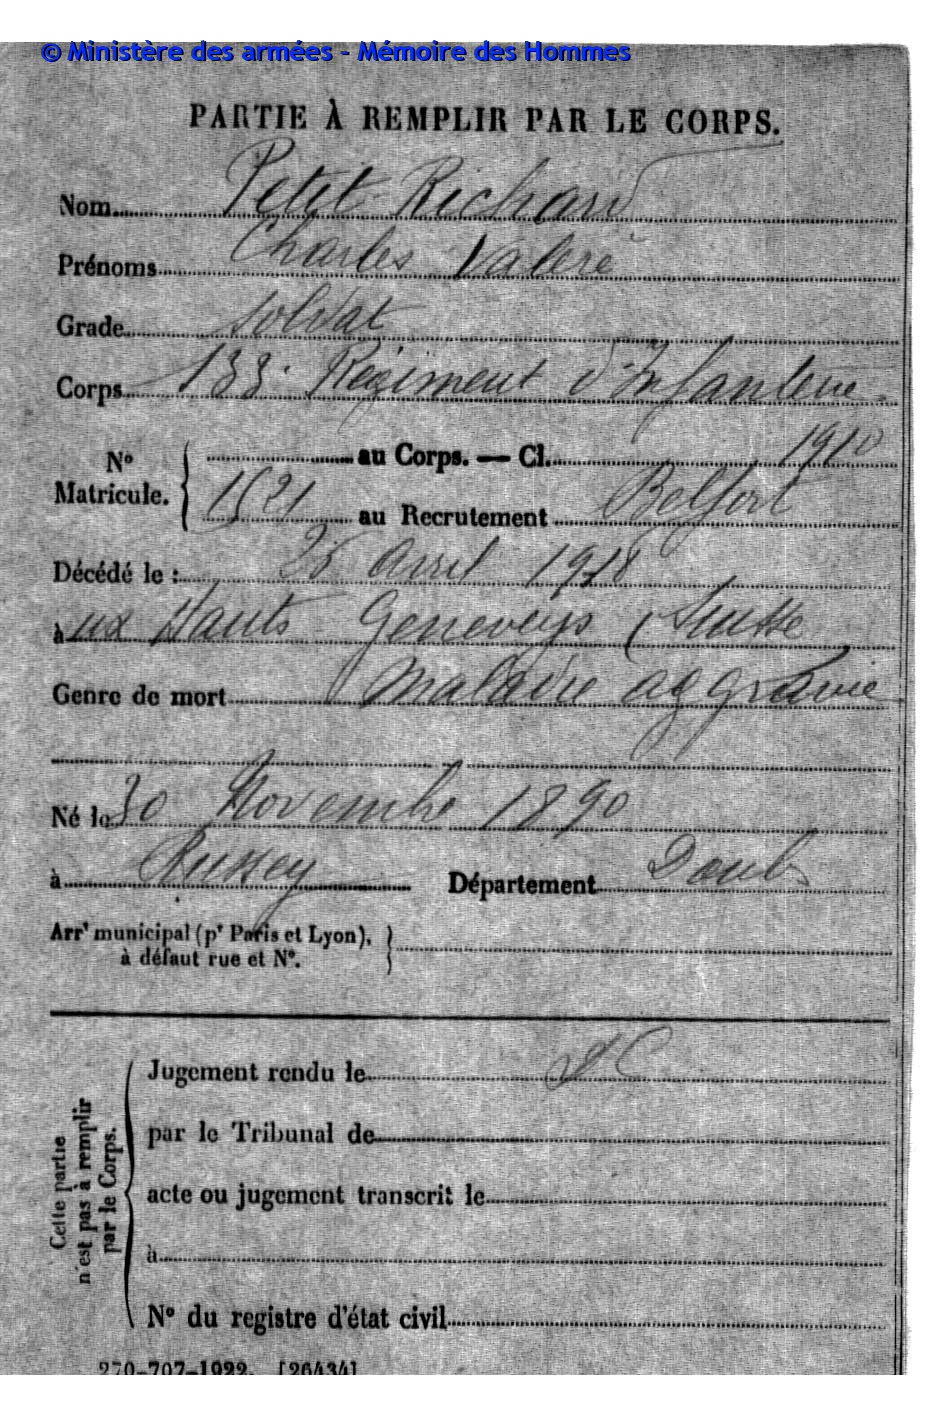 © Ministère des armées - Mémoire des Hommes
PARTIE À REMPLIR PAR LE CORPS.
Nom Petit Richard
Prénoms Charles Valère
Grade soldat
Corps 133e Régiment d'Infanterie
N° Matricule. { au Corps. — Cl. 1910
1521 au Recrutement Belfort
Décédé le : 25 avril 1918
à ux Hauts Geneveys (Suisse
Genre de mort Maladie aggravée
Né le 30 Novembre 1890
à Russey Département Doubs
Arrt municipal (pr Paris et Lyon),
à défaut rue et N°.
Cette partie
n'est pas à remplir
par le Corps.
Jugement rendu le
par le Tribunal de
acte ou jugement transcrit le
à
N° du registre d'état civil
270-707-1922. [26434]